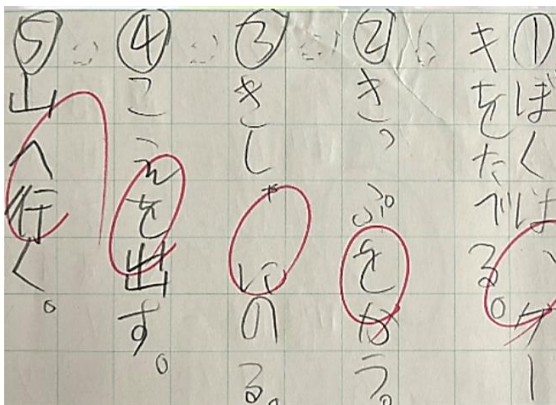 ①ぼくは、ケー
キをたべる。
②きっぷをかう。
③きしゃにのる。
④こえを出す。
⑤山へ行く。